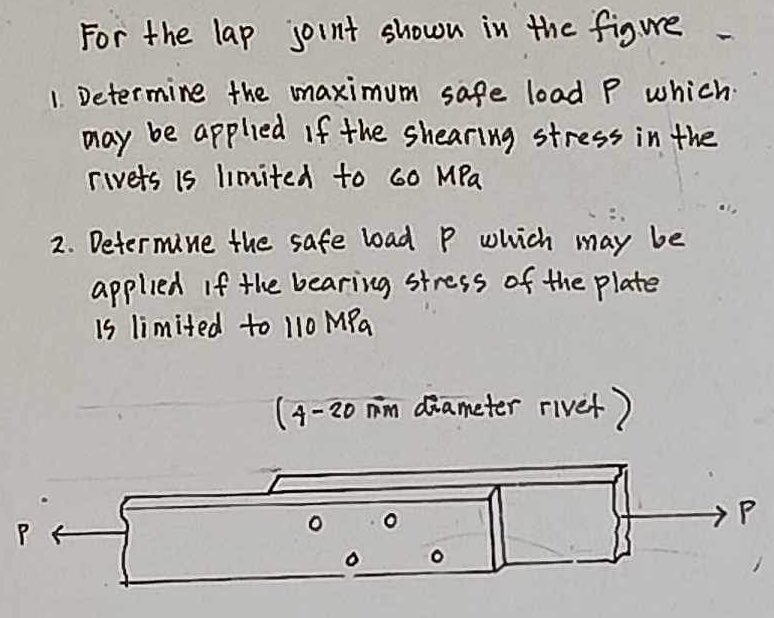 For the lap joint shown in the figure
1. Determine the maximum safe load P which
may be applied if the shearing stress in the
rivets is limited to 60 MPa
2. Determine the safe load P which may be
applied if the bearing stress of the plate
is limited to 110 MPa
(4-20 mm diameter rivet)
P
P